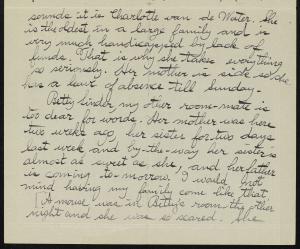 sounds it is Charlotte van de Water. She
is the oldest in a large family and is
very much handicapped by lack of
funds. That is why she takes everything
so seriously. Her mother is sick so she
has a leave of absence till Sunday.
Betty Linder, my other room-mate is
too dear for words. Her mother was here
two weeks ago, her sister for two days
last week and by-the-way her sister is
almost as sweet as she, and her father
is coming to-morrow. I would not
mind having my family come like that.
[A mouse was in Betty's room the other
night and she was so scared. She